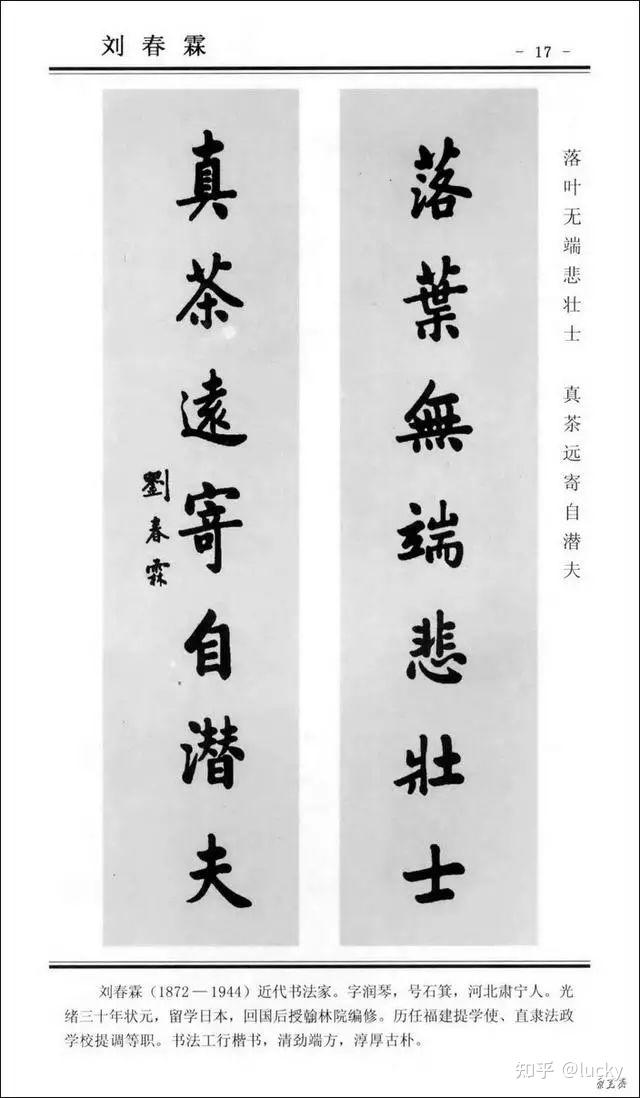 刘春霖
- 17 -
落葉無端悲壯士
真茶遠寄自潛夫
劉春霖
落叶无端悲壮士 真茶远寄自潜夫
刘春霖（1872—1944）近代书法家。字润琴，号石箕，河北肃宁人。光
绪三十年状元，留学日本，回国后授翰林院编修。历任福建提学使、直隶法政
学校提调等职。书法工行楷书，清劲端方，淳厚古朴。
知乎 @lucky